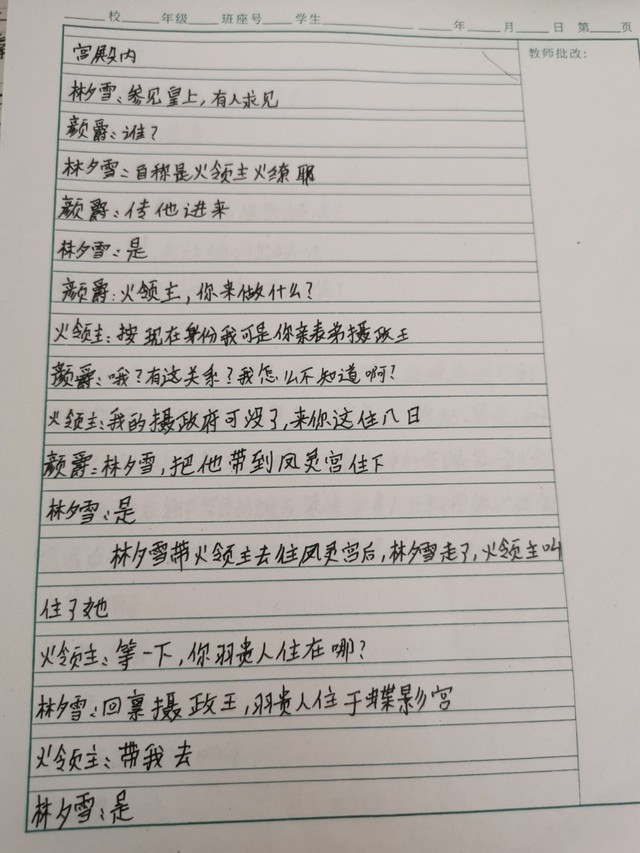 校 年级 班座号 学生 年 月 日 第 页
教师批改:
宫殿内
林夕雪:参见皇上,有人求见
颜爵:谁?
林夕雪:自称是火领主火燎耶
颜爵:传他进来
林夕雪:是
颜爵:火领主,你来做什么?
火领主:按现在身份我可是你亲表弟摄政王
颜爵:哦?有这关系?我怎么不知道啊?
火领主:我的摄政府可没了,来你这住几日
颜爵:林夕雪,把他带到凤灵宫住下
林夕雪:是
林夕雪带火领主去住凤灵宫后,林夕雪走了,火领主叫
住了她
火领主:等一下,你羽贵人住在哪?
林夕雪:回禀摄政王,羽贵人住于蝶影宫
火领主:带我去
林夕雪:是